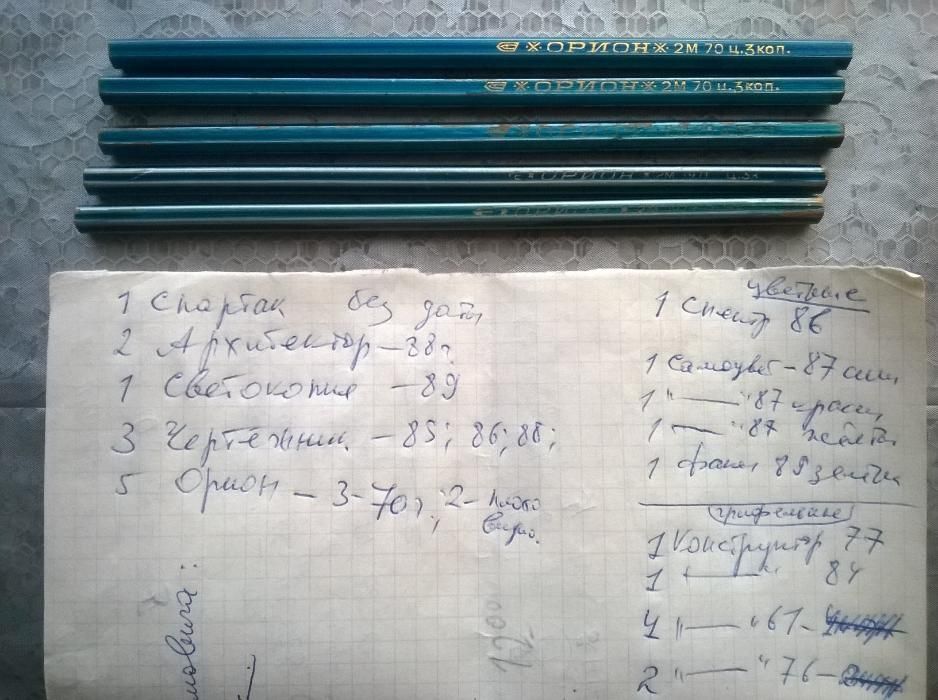 ОРИОН 2М 70 ц.3коп.
ОРИОН 2М 70 ц.3коп.
ОРИОН 2М ц.3к
ОРИОН
1 Спартак без даты
2 Архитектор - 88г.
1 Светокопия - 89
3 Чертежник - 85; 86; 88;
5 Орион - 3-70г.; 2- плохо
видно.
цветные
1 Спектр 86
1 Самоцвет - 87 син
1 "—" 87 красн
1 "—" 87 желты
1 Факел 89 зелен
грифельные
1 Конструктор 77
1 "—" 84
4 "—" 61 -
2 "—" 76 -
1200